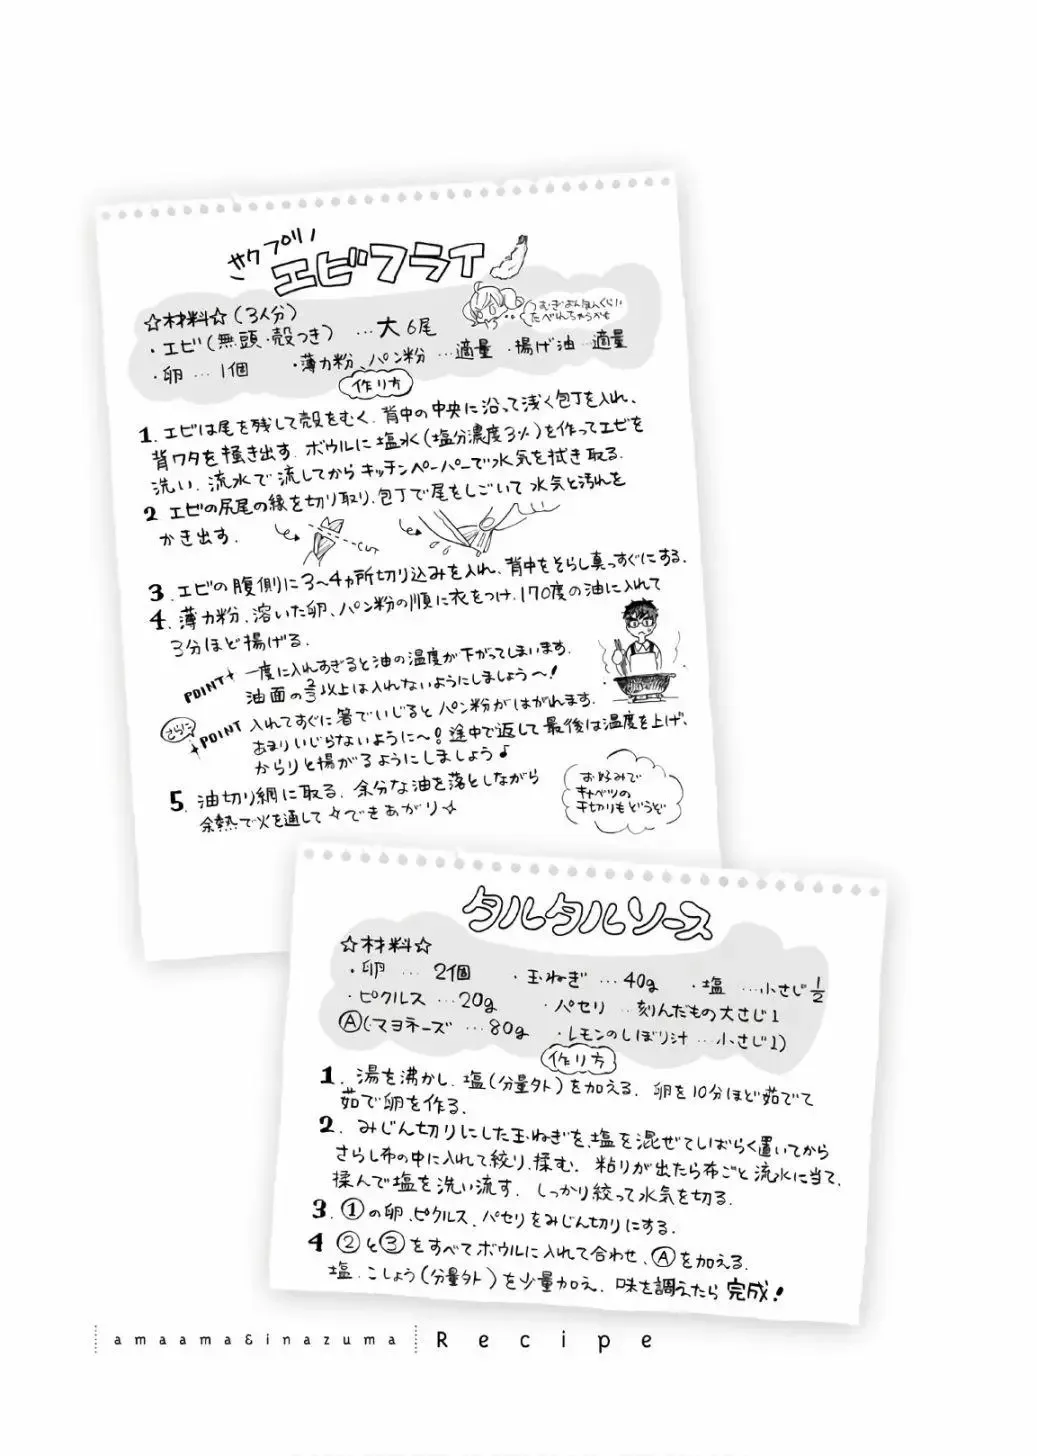 サクプリ！
エビフライ
☆材料☆(3人分)
・エビ(無頭・殻つき) …大6尾
・卵 … 1個 ・薄力粉、パン粉 …適量 ・揚げ油 …適量
むぎよんほんくらい
たべれちゃうかも
作り方
1. エビは尾を残して殻をむく。背中の中央に沿って浅く包丁を入れ、
背ワタを掻き出す。ボウルに塩水(塩分濃度3%)を作ってエビを
洗い、流水で流してからキッチンペーパーで水気を拭き取る。
2 エビの尻尾の縁を切り取り、包丁で尾をしごいて水気と汚れを
かき出す。
CUT
3. エビの腹側に3〜4ヵ所切り込みを入れ、背中をそらし真っすぐにする。
4. 薄力粉、溶いた卵、パン粉の順に衣をつけ、170度の油に入れて
3分ほど揚げる。
POINT 一度に入れすぎると油の温度が下がってしまいます。
油面の2/3以上は入れないようにしましょう〜！
さらに POINT 入れてすぐに箸でいじるとパン粉がはがれます。
あまりいじらないように〜！途中で返して最後は温度を上げ、
からりと揚がるようにしましょう♪
5. 油切り網に取る。余分な油を落としながら
余熱で火を通して☆できあがり☆
お好みで
キャベツの
千切りもどうぞ
タルタルソース
☆材料☆
・卵 … 2個 ・玉ねぎ … 40g ・塩 …小さじ1/2
・ピクルス …20g ・パセリ …刻んだもの大さじ1
Ⓐ(・マヨネーズ …80g ・レモンのしぼり汁 …小さじ1)
作り方
1. 湯を沸かし、塩(分量外)を加える。卵を10分ほど茹でて
茹で卵を作る。
2. みじん切りにした玉ねぎを、塩を混ぜてしばらく置いてから
さらし布の中に入れて絞り、揉む。粘りが出たら布ごと流水に当て、
揉んで塩を洗い流す。しっかり絞って水気を切る。
3. ①の卵、ピクルス、パセリをみじん切りにする。
4 ②と③をすべてボウルに入れて合わせ、Ⓐを加える。
塩、こしょう(分量外)を少量加え、味を調えたら完成！
amaama&inazuma Recipe